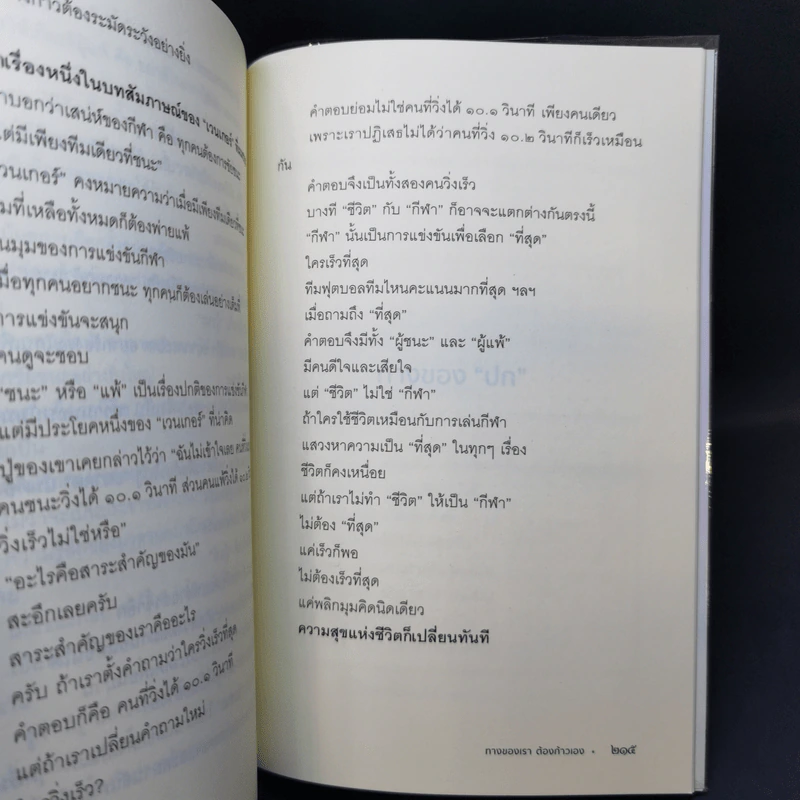 ก้าวต้องระมัดระวังอย่างยิ่ง
เรื่องหนึ่งในบทสัมภาษณ์ของ "เวนเกอร์"
าบอกว่าเสน่ห์ของกีฬา คือ ทุกคนต้องการชัยชนะ
แต่มีเพียงทีมเดียวที่ชนะ"
วนเกอร์" คงหมายความว่าเมื่อมีเพียงทีมเดียวที่ชนะ
มที่เหลือทั้งหมดก็ต้องพ่ายแพ้
นมุมของการแข่งขันกีฬา
มื่อทุกคนอยากชนะ ทุกคนก็ต้องเล่นอย่างเต็มที่
การแข่งขันจะสนุก
คนดูจะชอบ
"ชนะ" หรือ "แพ้" เป็นเรื่องปกติของการแข่งขันกีฬา
แต่มีประโยคหนึ่งของ "เวนเกอร์" ที่น่าคิด
ปู่ของเขาเคยกล่าวไว้ว่า "ฉันไม่เข้าใจเลย
คนชนะวิ่งได้ ๑๐.๑ วินาที ส่วนคนแพ้วิ่งได้
วิ่งเร็วไม่ใช่หรือ"
"อะไรคือสาระสำคัญของมัน"
สะอึกเลยครับ
สาระสำคัญของเราคืออะไร
ครับ ถ้าเราตั้งคำถามว่าใครวิ่งเร็วที่สุด
คำตอบก็คือ คนที่วิ่งได้ ๑๐.๑ วินาที
แต่ถ้าเราเปลี่ยนคำถามใหม่
วิ่งเร็ว?
คำตอบย่อมไม่ใช่คนที่วิ่งได้ ๑๐.๑ วินาที เพียงคนเดียว
เพราะเราปฏิเสธไม่ได้ว่าคนที่วิ่ง ๑๐.๒ วินาทีก็เร็วเหมือน
กัน
คำตอบจึงเป็นทั้งสองคนวิ่งเร็ว
บางที "ชีวิต" กับ "กีฬา" ก็อาจจะแตกต่างกันตรงนี้
"กีฬา" นั้นเป็นการแข่งขันเพื่อเลือก "ที่สุด"
ใครเร็วที่สุด
ทีมฟุตบอลทีมไหนคะแนนมากที่สุด ฯลฯ
เมื่อถามถึง "ที่สุด"
คำตอบจึงมีทั้ง "ผู้ชนะ" และ "ผู้แพ้"
มีคนดีใจและเสียใจ
แต่ "ชีวิต" ไม่ใช่ "กีฬา"
ถ้าใครใช้ชีวิตเหมือนกับการเล่นกีฬา
แสวงหาความเป็น "ที่สุด" ในทุกๆ เรื่อง
ชีวิตก็คงเหนื่อย
แต่ถ้าเราไม่ทำ "ชีวิต" ให้เป็น "กีฬา"
ไม่ต้อง "ที่สุด"
แค่เร็วก็พอ
ไม่ต้องเร็วที่สุด
แค่พลิกมุมคิดนิดเดียว
ความสุขแห่งชีวิตก็เปลี่ยนทันที
ทางของเรา ต้องก้าวเอง • ๒๑๕